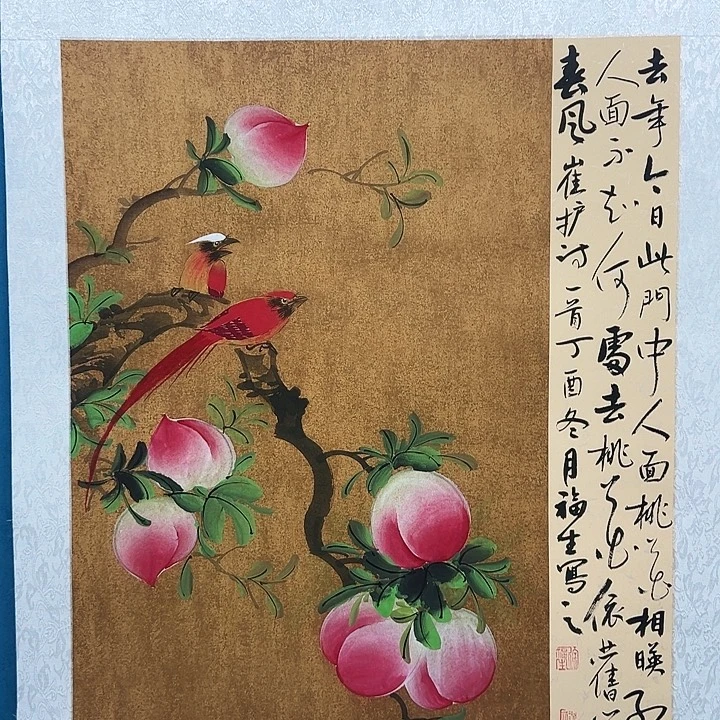 去年今日此門中人面桃花相暎
人面不知何處去桃花依舊
春风崔护诗一首丁酉冬月福生寫之